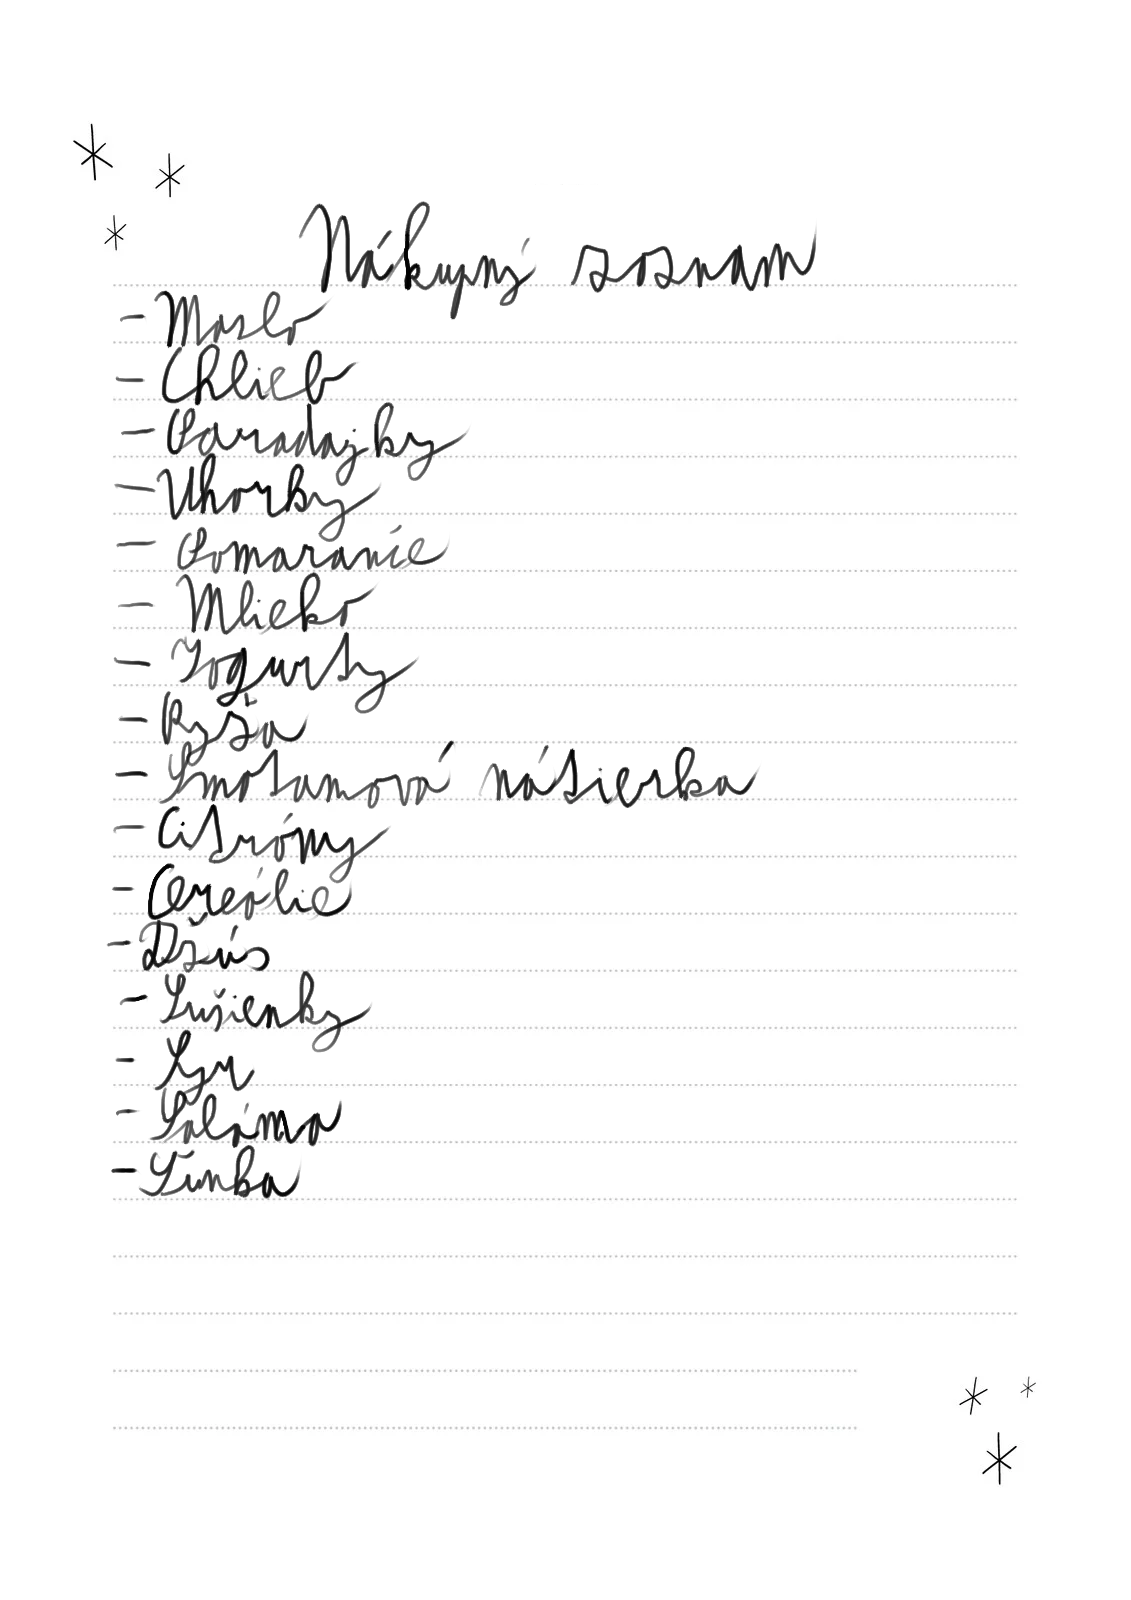 Nákupný soznam
- Maslo
- Chlieb
- Paradajky
- Uhorky
- Pomaranče
- Mlieko
- Jogurty
- Ryža
- Smotamová nátierka
- Citróny
- Cereálie
- Džús
- Sušienky
- Syr
- Saláma
- Šunka